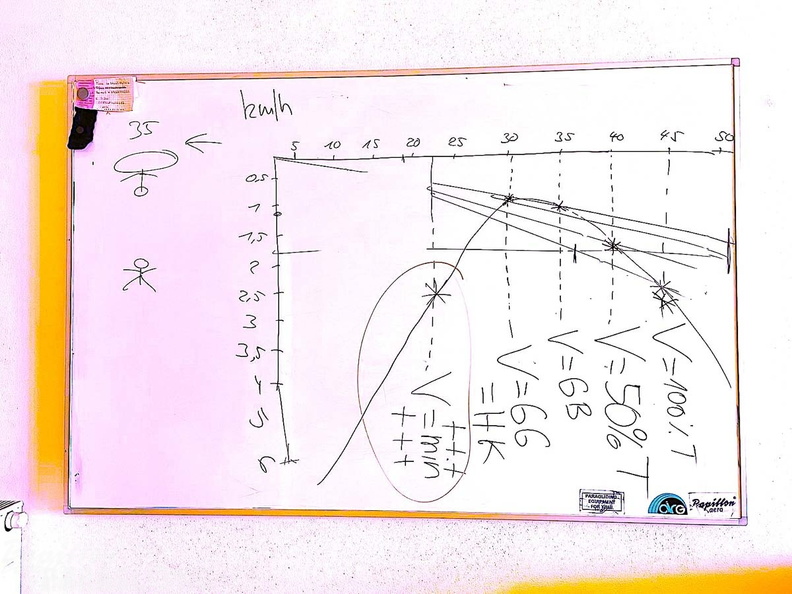 km/h
35
5 10 15 20 25 30 35 40 45 50
0,5
1
1,5
2
2,5
3
3,5
4
5
6
+++
V=min
+++
V=GG
=HK
V=GB
V=50% T
V=100% T
PARAGLIDING
EQUIPMENT
FOR YOU!
Papillon
aero